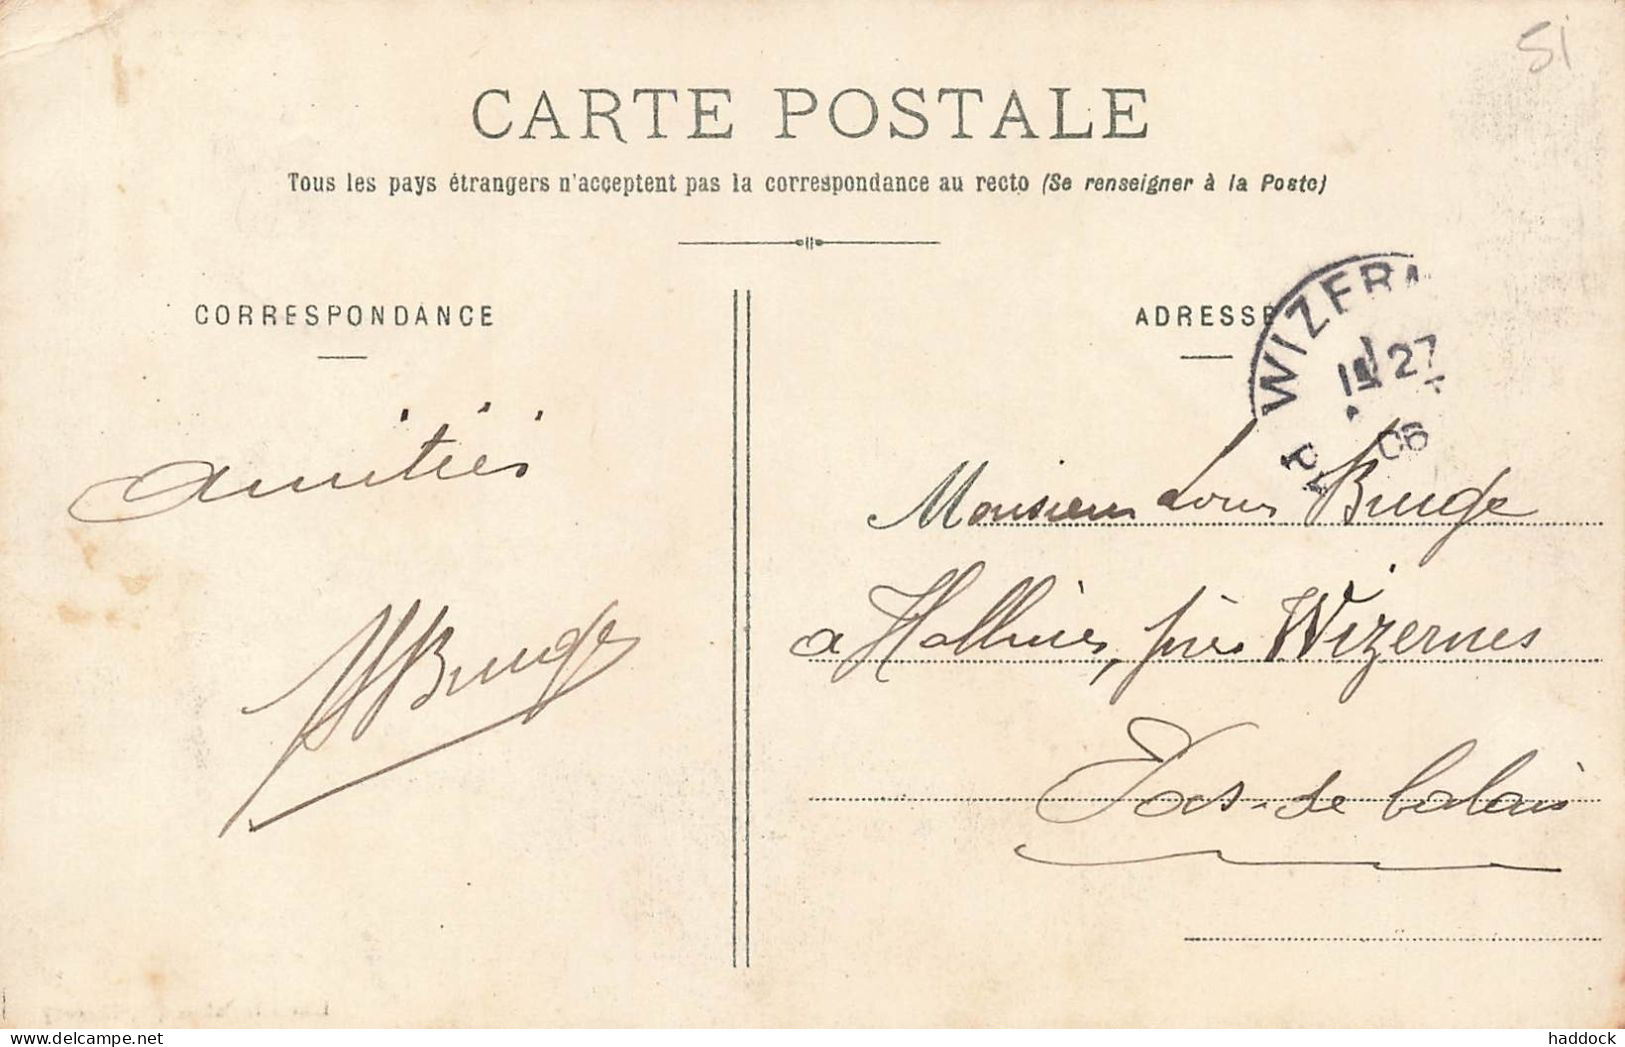 51
CARTE POSTALE
Tous les pays étrangers n'acceptent pas la correspondance au recto (Se renseigner à la Poste)
CORRESPONDANCE
amitiés
ADRESSE
WIZERN
27
06
Monsieur Louis Bruge
a Hallines, près Wizernes
Pas-de Calais
haddock